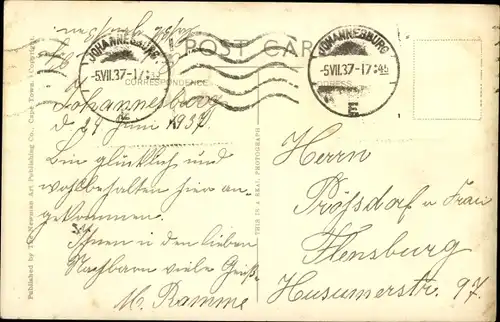 POST CARD
JOHANNESBURG
-5.VII.37-17:45
E
JOHANNESBURG
5.VII.37-17:45
E
CORRESPONDENCE
ADDRESS
Johannesburg
d 29 Juni 1937.
Bin glücklich und
wohlbehalten hier an-
gekommen.
Ihnen u den lieben
Nachbarn viele Grüße
M. Ramme
Herrn
Prößdorf u Frau
Flensburg
Husumerstr. 97.
THIS IS A REAL PHOTOGRAPH
Published by The Newman Art Publishing Co., Cape Town. (Copyright)